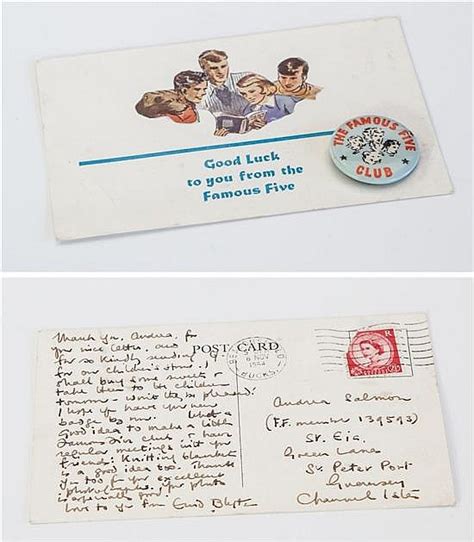 Good Luck
to you from the
Famous Five
THE FAMOUS FIVE
CLUB
POST CARD
6 NOV
BUCKS
Thank you, Andrea, for
your nice letter, and
for so kindly sending
for our children's
shall buy some
take them to the children
tomorrow - won't be pleased!
I hope you have your new
badge by now. What a
good idea to make a little
Famous Five club & have
regular meetings with your
friends. Knitting blankets
is a good idea too. Thank
you too for your excellent
photographs. Your photo
is especially good!
Love to you from Enid Blyton
Andrea Salmon
(F.F. member 139593)
St.
Green Lane
St. Peter Port
Guernsey
Channel Isles